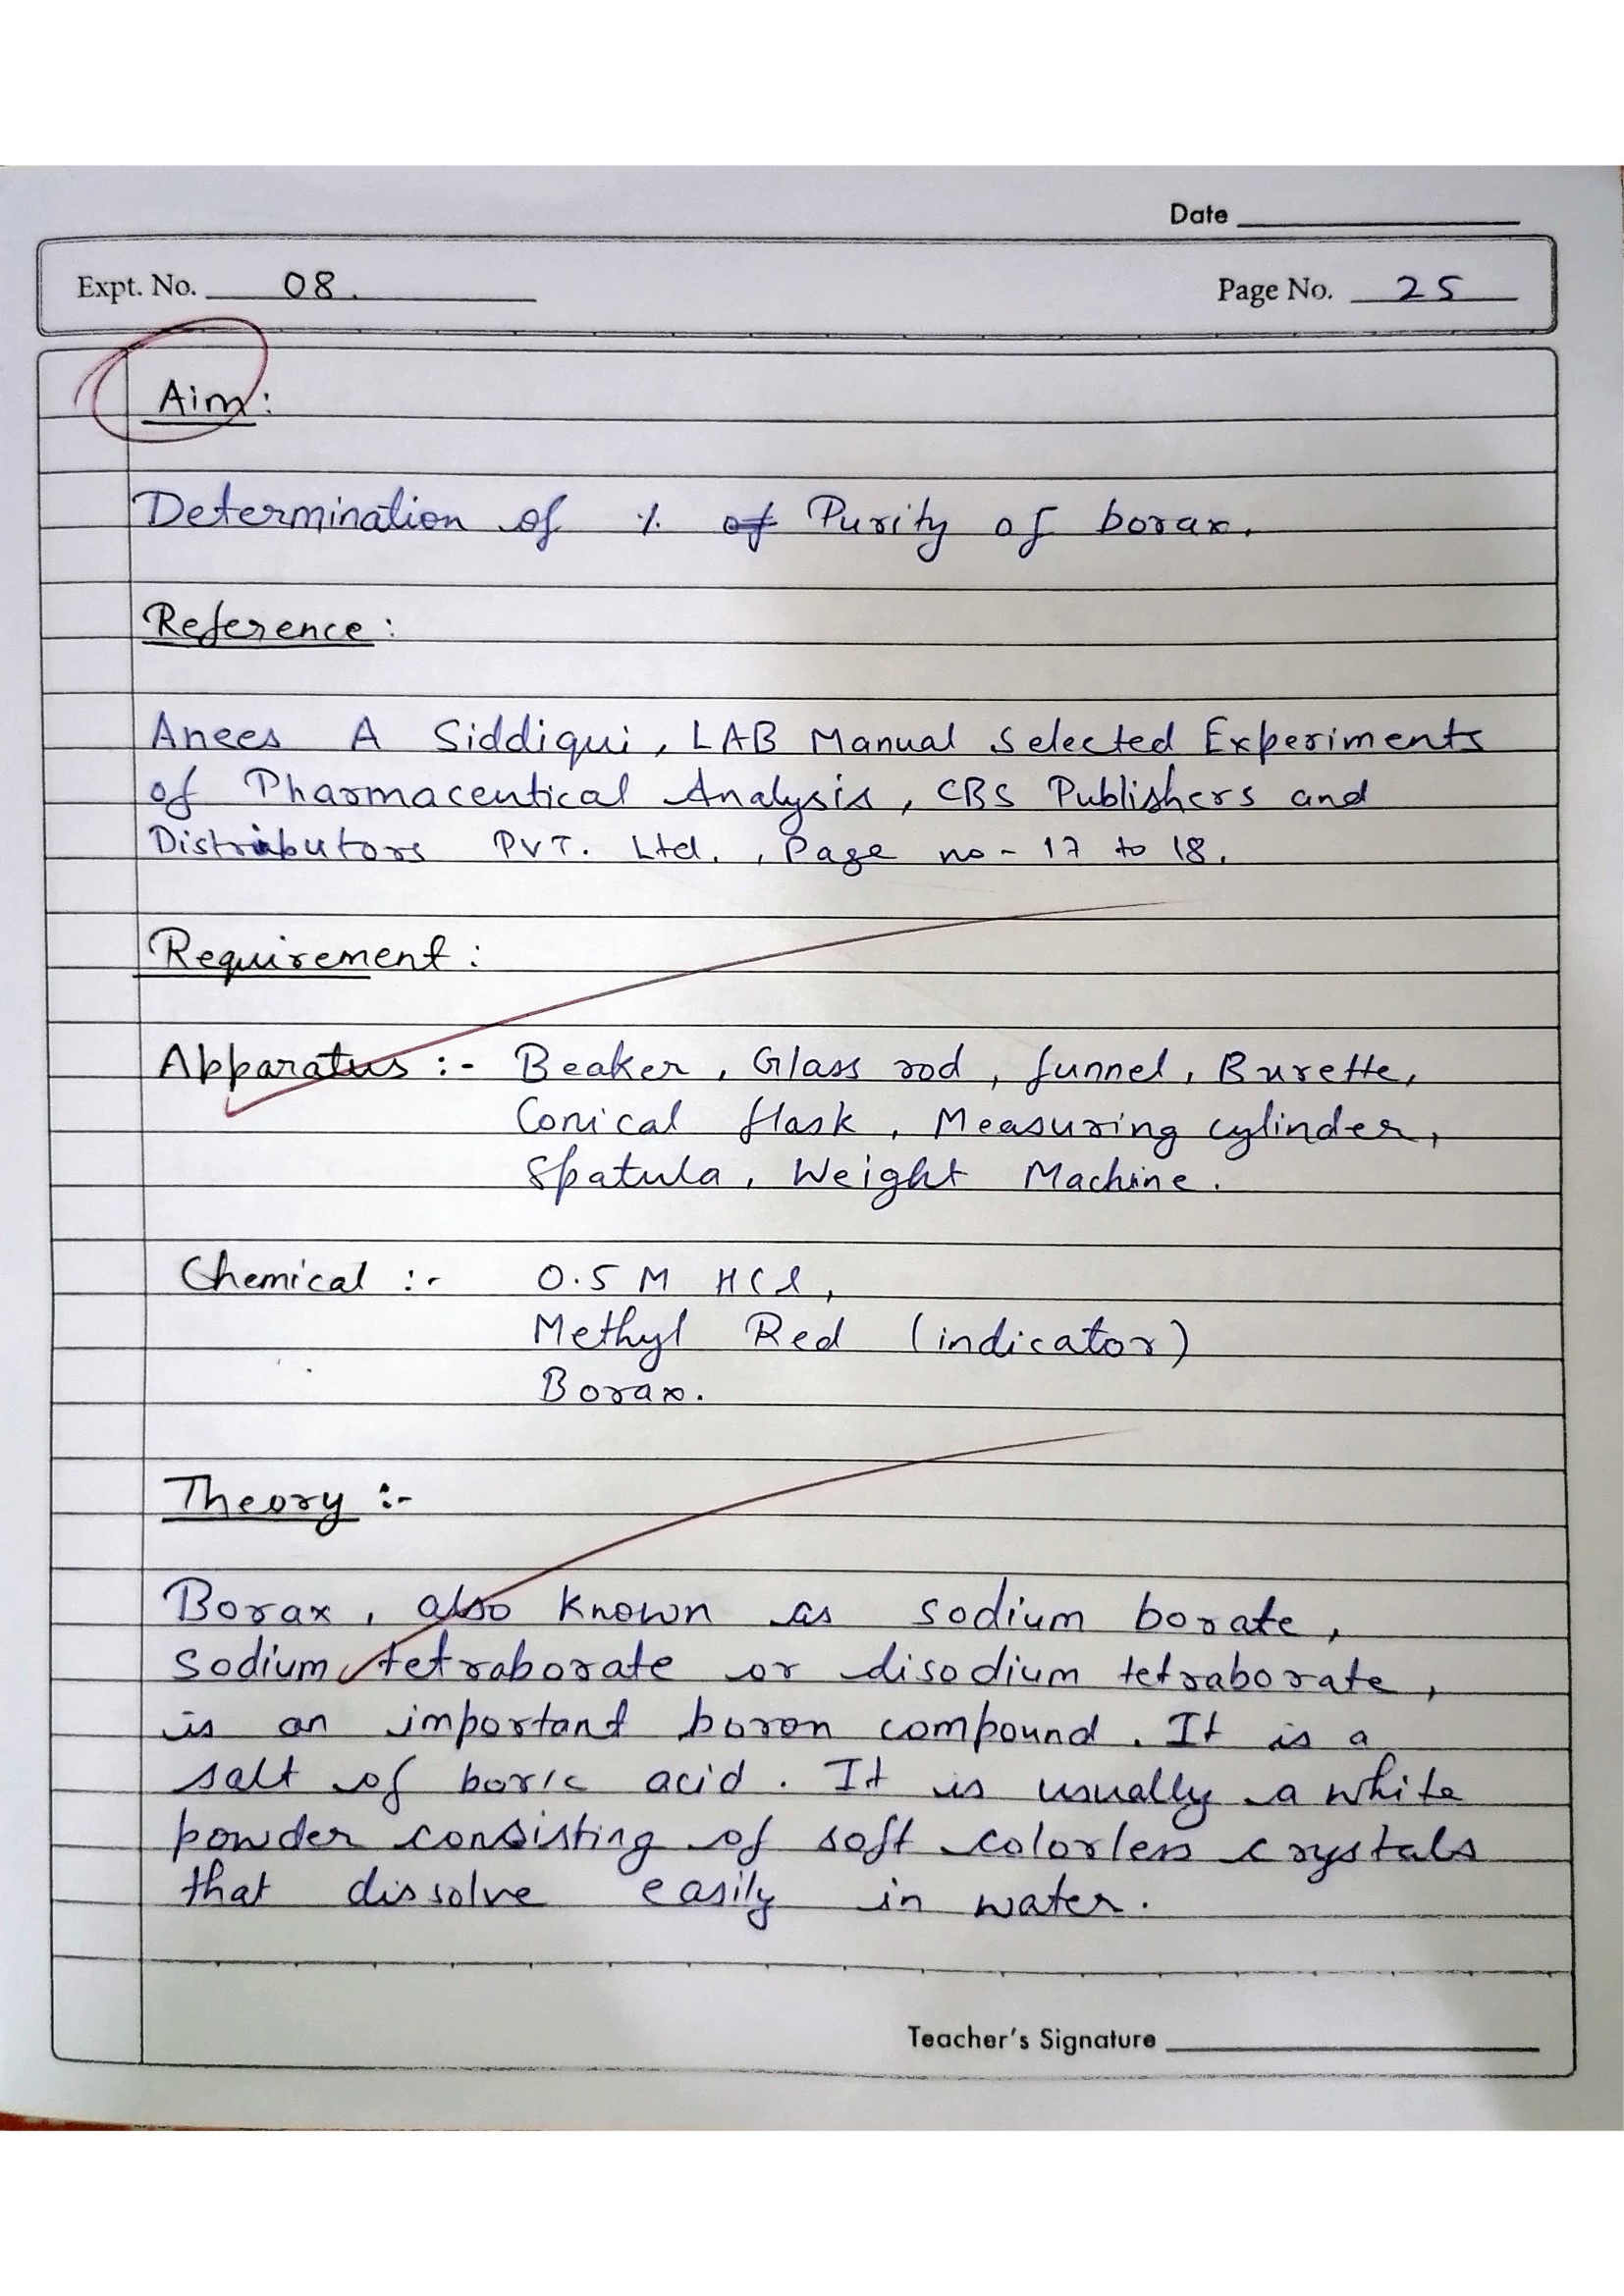 Date
Expt. No. 08. Page No. 25
Aim:
Determination of % of Purity of borax.
Reference:
Anees A Siddiqui, LAB Manual Selected Experiments
of Pharmaceutical Analysis, CBS Publishers and
Distributors PVT. Ltd., Page no - 17 to 18.
Requirement:
Apparatus :- Beaker, Glass rod, funnel, Burette,
Conical flask, Measuring cylinder,
Spatula, Weight Machine.
Chemical :- 0.5 M HCl,
Methyl Red (indicator)
Borax.
Theory :-
Borax, also known as sodium borate,
Sodium tetraborate or disodium tetraborate,
is an important boron compound. It is a
salt of boric acid. It is usually a white
powder consisting of soft colorless crystals
that dissolve easily in water.
Teacher's Signature